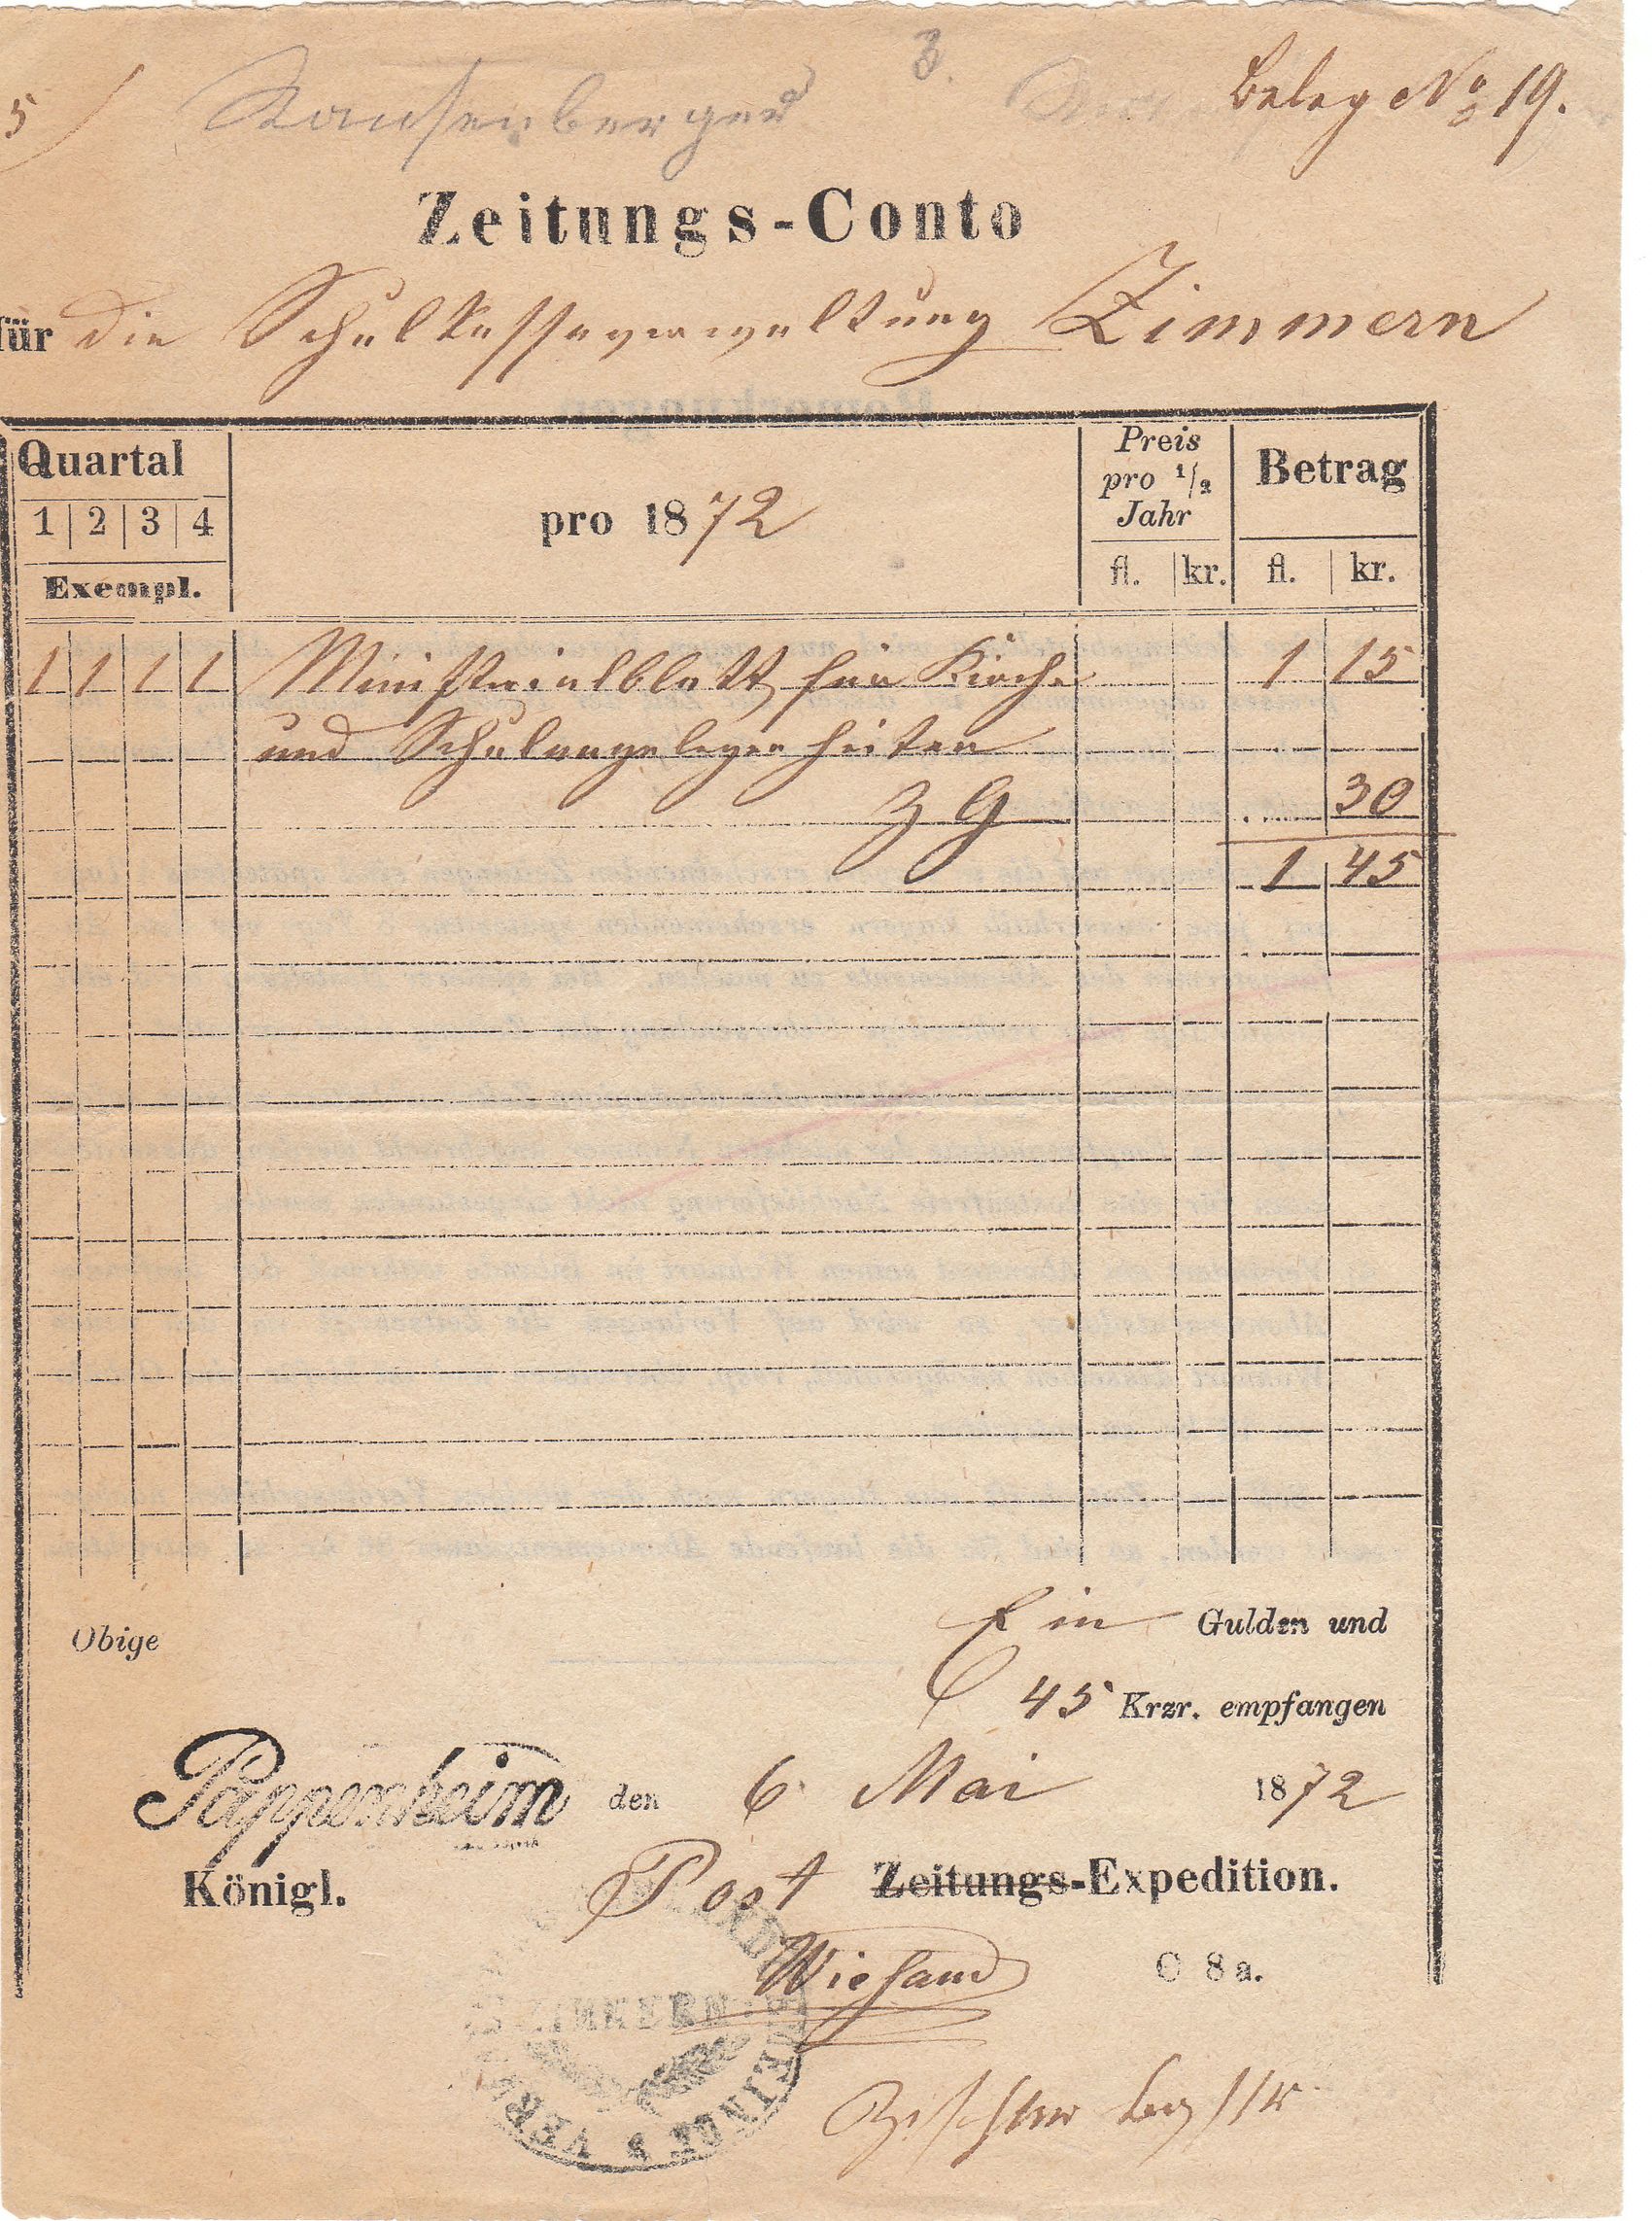 3.
5 Beleg No 19.
Zeitungs-Conto
für die Schulkasseverwaltung Zimmern
Quartal
1 2 3 4
Exempl.
pro 1872
Preis
pro 1/2
Jahr
fl. kr.
Betrag
fl. kr.
1 1 1 1 Ministerialblatt für Kirche 1 15
und Schulangelegenheiten
Z G 30
1 45
Obige Ein Gulden und
45 Krzr. empfangen
Pappenheim den 6. Mai 1872
Königl. Post Zeitungs-Expedition.
Wiesand
C 8a.
ZIMMERN